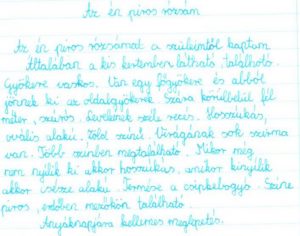 Az én piros rózsám
Az én piros rózsámat a szüleimtől kaptam
Általában a kis kertemben látható, található.
Gyökere vaskos. Van egy főgyökere és abból
jönnek ki az oldalgyökerek. Szára körülbelül fél
méter, szúrós. Levelének széle recés. Hosszúkás,
ovális alakú. Zöld színű. Virágának sok szirma
van. Több színben megtalálható. Mikor még
nem nyílik ki akkor hosszúkás, amikor kinyílik
akkor csésze alakú. Termése a csipkebogyó. Színe
piros, erdőben mezőkön található.
Anyáknapjára kellemes meglepetés.